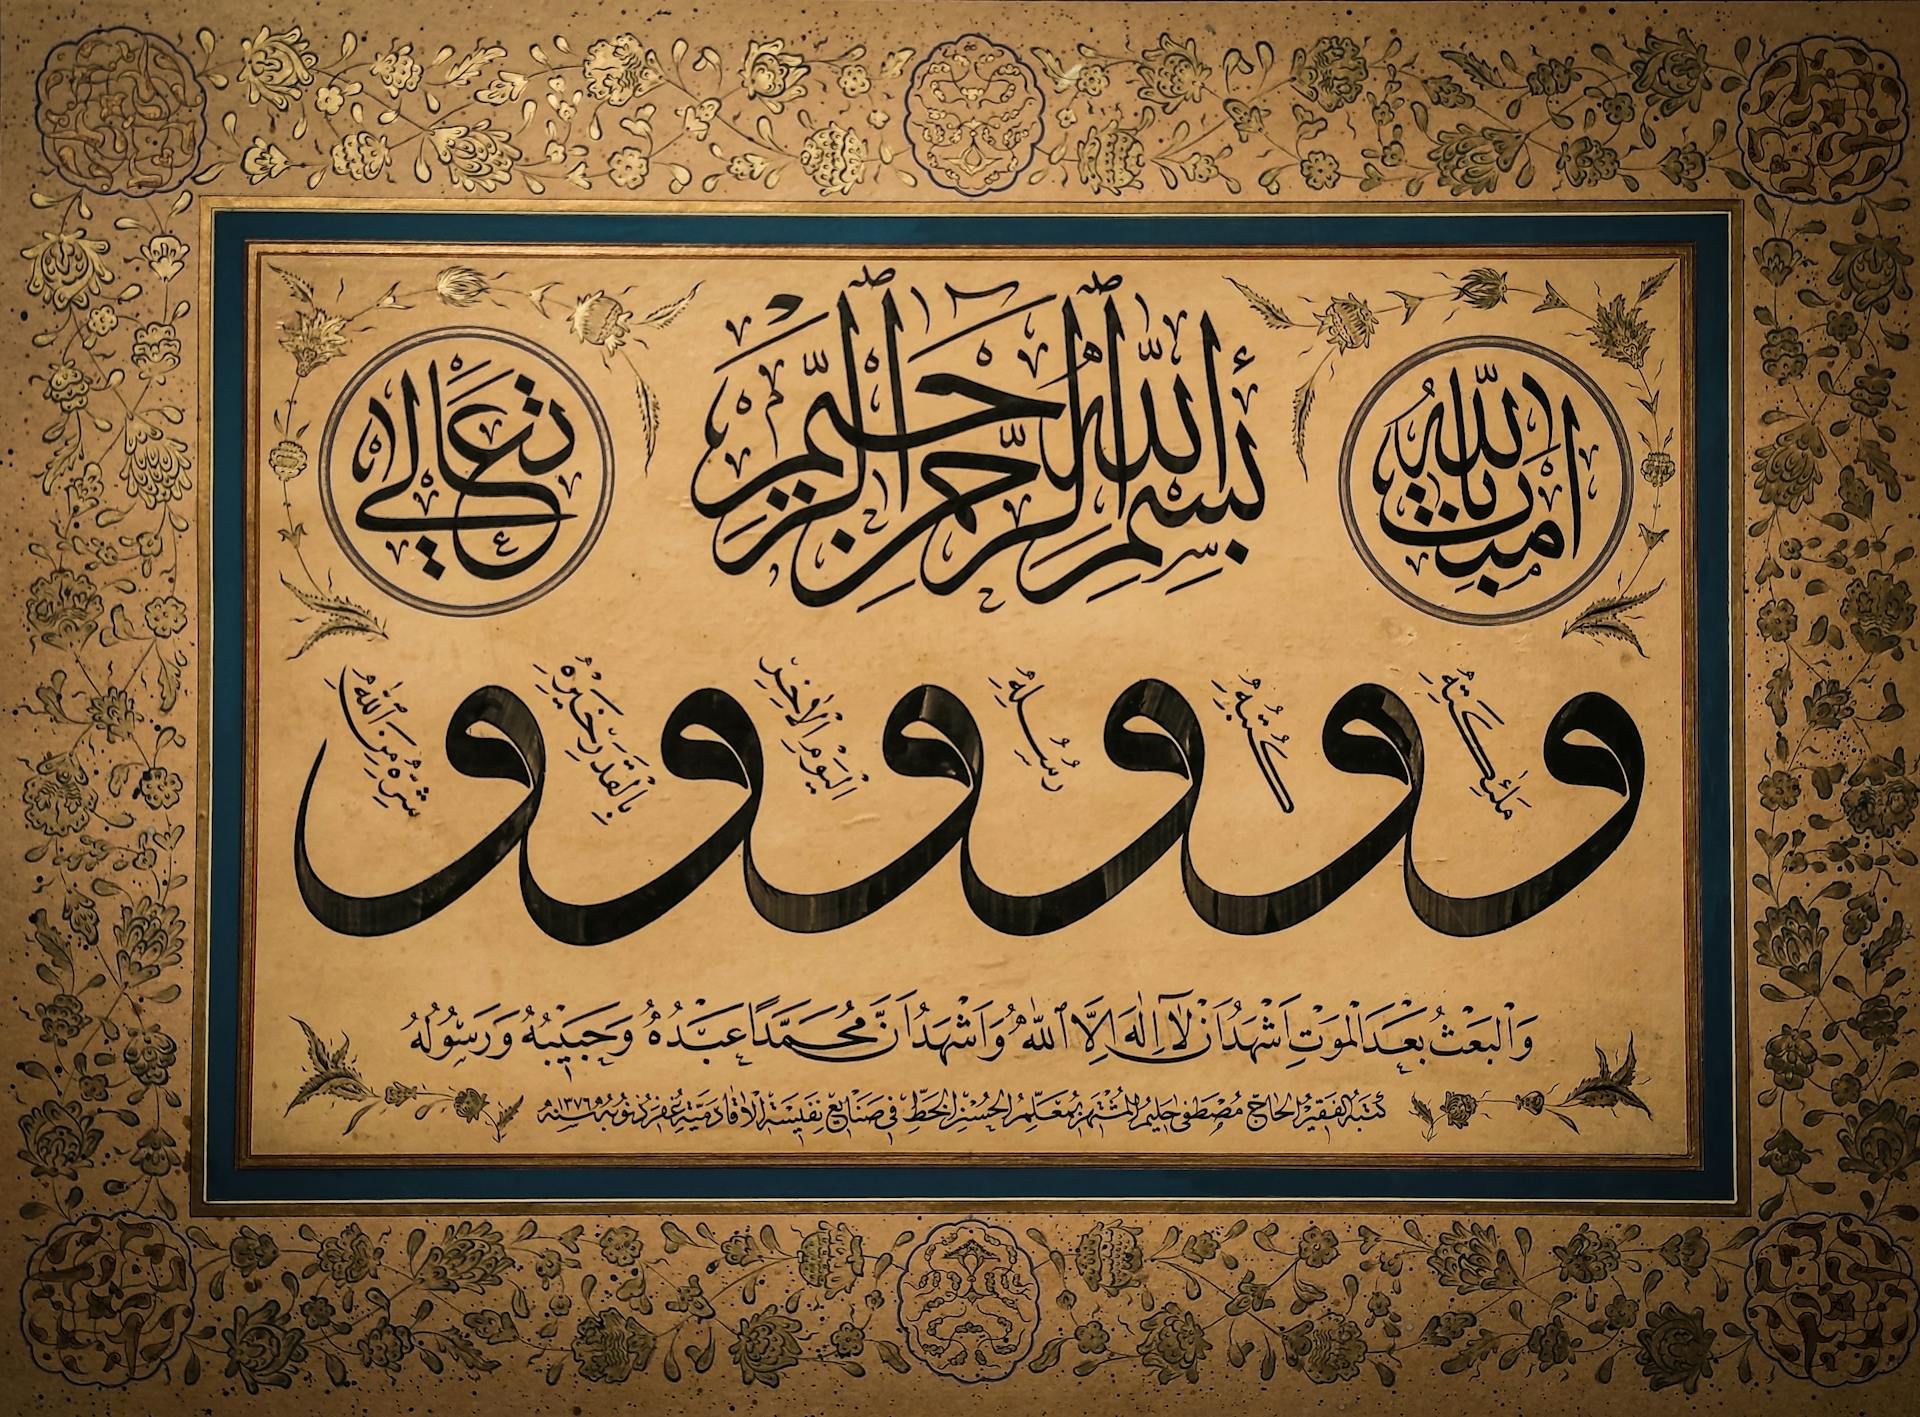 بِسْمِ اللّٰهِ الرَّحْمٰنِ الرَّحِيمِ
اٰمَنْتُ بِاللّٰهِ
تَعَالٰى
و مَلٰئِكَتِهِ و كُتُبِهِ و رُسُلِهِ و الْيَوْمِ الْاٰخِرِ و بِالْقَدَرِ خَيْرِهِ و شَرِّهِ مِنَ اللّٰهِ
وَالْبَعْثُ بَعْدَ الْمَوْتِ اَشْهَدُ اَنْ لَا اِلٰهَ اِلَّا اللّٰهُ وَاَشْهَدُ اَنَّ مُحَمَّدًا عَبْدُهُ وَحَبِيْبُهُ وَرَسُولُهُ
كتبه الفقير الحاج مصطفى حليم المشتهر بمعلم الحسن الخط في صنايع نفيسة الاقادمية غفر ذنوبه سنه ١٣٧٦